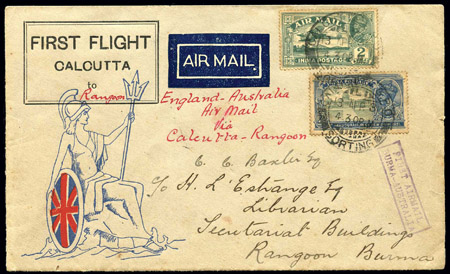 FIRST FLIGHT
CALCUTTA
to
Rangoon
AIR MAIL
AIR MAIL
INDIA POSTAGE
2
England-Australia
Air Mail
via
Calcutta-Rangoon
C. C. Baxter Esq
c/o H. L'Estrange Esq
Librarian
Secretarial Buildings
Rangoon Burma
SORTING
FIRST AIRMAIL